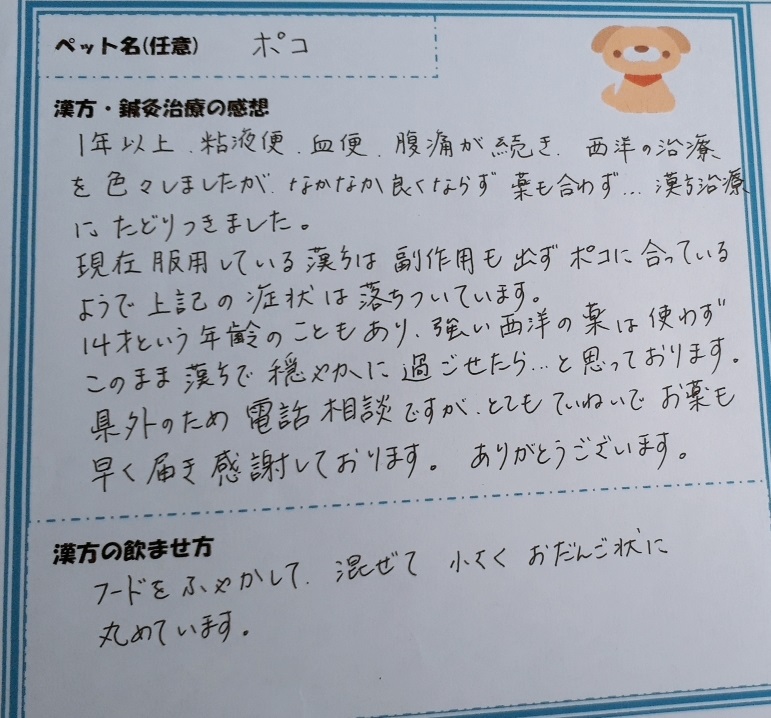 ペット名(任意) ポコ
漢方・鍼灸治療の感想
1年以上、粘液便、血便、腹痛が続き、西洋の治療
を色々しましたが、なかなか良くならず薬も合わず…漢方治療
にたどりつきました。
現在服用している漢方は副作用も出ずポコに合っている
ようで上記の症状は落ちついています。
14才という年齢のこともあり、強い西洋の薬は使わず
このまま漢方で穏やかに過ごせたら…と思っております。
県外のため電話相談ですが、とてもていねいでお薬も
早く届き感謝しております。 ありがとうございます。
漢方の飲ませ方
フードをふやかして、混ぜて小さくおだんご状に
丸めています。